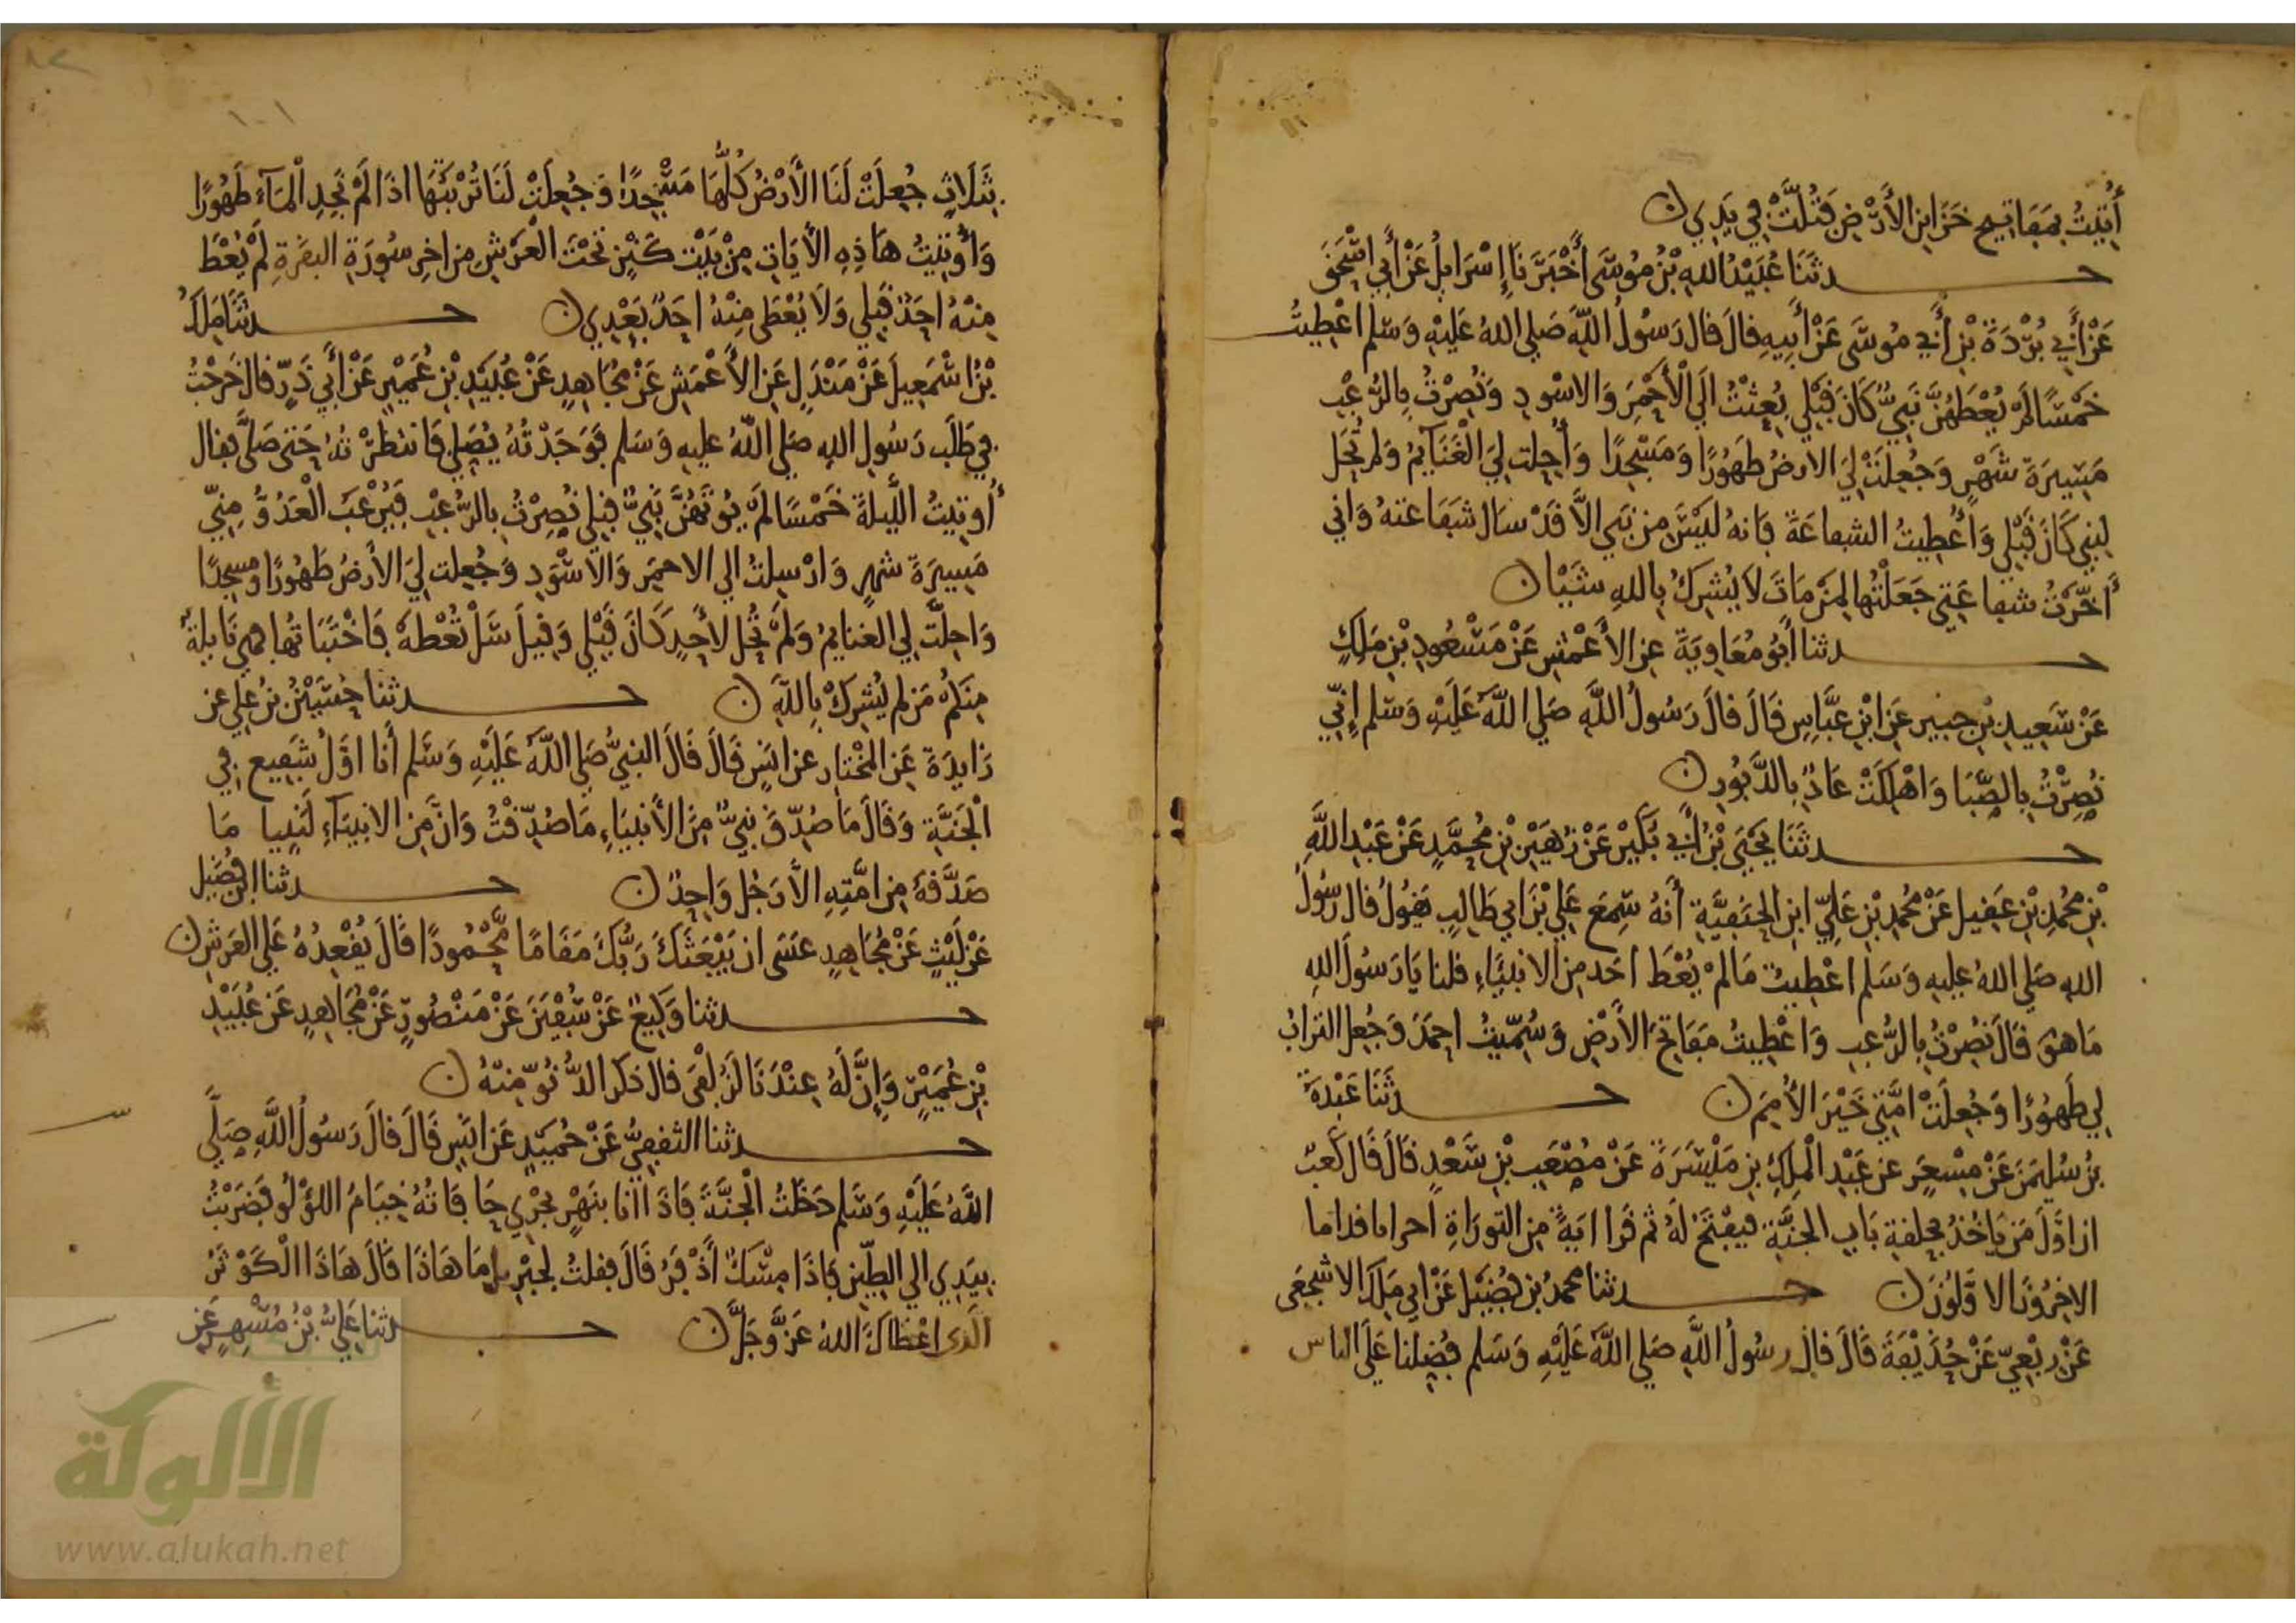 أُتِيتُ بِمَفَاتِيحِ خَزَايِنِ الأَرْضِ فَتُلَّتْ فِي يَدِي ن
حدثَنَا عُبَيْدُ اللهِ بْنُ مُوسَى أَخْبَرَنَا إِسْرَايِلُ عَنْ أَبِي إِسْحَقَ
عَنْ أَبِي بُرْدَةَ بْنِ أَبِي مُوسَى عَنْ أَبِيهِ قالَ قال رَسُولُ اللَّهِ صَلى اللهُ عَلَيْهِ وَسَلم اعْطِيتُ
خَمْسًا لَمْ يُعْطَهُنَّ نَبِيٌّ كَانَ قَبْلِي بُعِثْتُ الَي الْأَحْمَرِ وَالاسْودِ وَنُصِرْتُ بِالرُّعْبِ
مَسِيرَةَ شَهْرٍ وَجُعِلَتْ لِيَ الارضُ طَهُورًا وَمَسْجِدًا وَأُحِلت لِيَ الْغَنَايِمُ وَلم تُحَل
لِنبِي كَانَ قَبْلِي وَأُعْطِيتُ الشفاعَةَ فَانهُ لَيْسَ مِن نَبِي الاَّ قَدْ سَال شَفَاعَتهُ وَانِي
أَخَّرْتُ شفاعَتِي جَعَلْتُها لِمَنْ مَاتَ لاَ يُشرِكُ بِاللهِ شَيْيا ن
حدثنا أَبُو مُعَاوِيَةَ عنِ الأَعْمَشِ عَنْ مَسْعُودِ بْنِ مَلِكٍ
عَنْ سَعِيدِ بْنِ جبير عَنِ ابْنِ عبَّاسِ قَالَ قالَ رَسُولُ اللَّهِ صَلي اللَّهُ عَلَيْهِ وَسَلم إِنِّي
نُصِرْتُ بِالصَّبَا وَاهْلِكَتْ عَادٌ بِالدَّبُورِ ن
حدثَنَا يَحْيَى بْنُ أَبِي بُكَيْرٍ عَنْ زُهَيْرِ بْنِ مُحَمَّدٍ عَنْ عَبْدِ اللَّهِ
بْنِ مُحَمدِ بْنِ عَقِيل عَنْ مُحَمدِ بْنِ عَلِيّ ابنِ الحَنَفِيَّةِ أَنهُ سَمِعَ عَلِي بْنَ ابي طَالِبٍ يَقُولُ قال رسُولُ
اللهِ صَلي اللهُ عليهِ وَسَلم اعْطِيتُ مَا لمْ يُعْطَ احَد مِنَ الانبِيَاءِ قلنا يَا رَسُولَ اللهِ
مَا هُوَ قَالَ نُصِرْتُ بِالرُّعبِ وَاعْطِيتُ مَفَاتِحَ الأَرْضِ وَسُمِّيتُ احمَدَ وَجُعِل الترابُ
لِي طَهُورًا وَجُعِلَتْ امَّتِي خَيْرَ الأُمَمِ ن حدثَنَا عَبْدَةُ
بنُ سُليمَنَ عَنْ مِسْعَرٍ عن عَبْدِ الْمِلِكِ بنِ مَيْسَرَةَ عَنْ مُصْعَبِ بْنِ سَعْدٍ قالَ قَالَ كَعبٌ
ان اوَّلَ مَن يَاخُذُ بحلقةِ بَابِ الجَنَّةِ فيفتَحُ لَهُ ثم قَرا ايَةً مِن التورَاةِ اخرايا قداما
الاخِرُونَ الاوَّلُونَ ن حدثنا محمدُ بْن فُضَيْل عَنْ ابِي مَلِك الاشجَعِي
عَنْ رِبْعِيّ عَنْ حُذَيْفَةَ قَالَ قالَ رسُولُ اللَّهِ صَلي اللَّهُ عَلَيْهِ وَسَلم فُضِلنا عَلَى الناس
١٠١
بِثَلاثٍ جُعِلَتْ لَنَا الأَرْضُ كُلُّهَا مَسْجِدًا وَجُعِلَتْ لَنَا تُرْبَتُهَا اذَا لَمْ نَجِدِ الْمَاءَ طَهُورًا
وَأُوتِيتُ هَاذِهِ الأيَاتِ مِنْ بَيْت كَنْزٍ تَحْتَ الْعَرْشِ مِن اخِرِ سُورَةِ البقَرَةِ لَمْ يُعْطَ
مِنْهُ احَدٌ قَبْلِي وَلاَ يُعْطَى مِنْهُ احَدٌ بَعْدِي ن حدثَنَا مَلِكُ
بْنُ اسْمَعِيلَ عَنْ مَنْدَلٍ عَنِ الأَعْمَشِ عَنْ مُجَاهِدٍ عَنْ عُبَيْدِ بْنِ عُمَيْرٍ عَنْ أَبِي ذَرٍّ قال خَرَجْتُ
فِي طَلَبِ رَسُولِ اللهِ صَلي اللَّهُ عليهِ وَسَلم فَوَجَدْتُهُ يُصَلِي فَانتظَرْتهُ حَتى صَلَّى فقال
أُوتِيتُ اللَّيلةَ خَمْسًا لَمْ يُوتَهُنَّ نَبِيٌّ قبلِي نُصِرْتُ بِالرُّعْبِ فَيُرْعَبُ الْعَدُوُّ مِنِّي
مَسِيرَةَ شهرٍ وَارْسِلتُ الي الاحمَرِ وَالاسْوَدِ وَجُعِلت لِيَ الأَرْضُ طَهُورًا ومسجِدًا
وَاحِلَّت لِي الغنايِمُ وَلَمْ تُحَل لأَحَدٍ كَانَ قَبْلِي وَقِيلَ سَلْ تُعْطَهْ فَاخْتَبَاتُها فهيَ نَايِلةٌ
مِنكُمُ مَن لم يُشرِكْ بِاللَّهِ ن حدثنا حُسَيْنُ بْنُ عَلِي عن
زَايِدَةَ عَنِ المُخْتارِ عن انَسٍ قَالَ قَالَ النبِيُّ صَلي اللَّهُ عَلَيْهِ وَسَلم أَنا اوَّلُ شَفِيعٍ فِي
الْجَنَّةِ وَقَالَ مَا صُدِّقَ نَبِيٌّ مِنَ الأَنبِيَاءِ مَا صُدِّقْتُ وَانَّ مِنَ الانبِيَاءِ لَنبِيا مَا
صَدَّقَهُ مِن امَّتِهِ الاَّ رَجُل وَاحِدٌ ن حدثنا ابن فُضَيل
عَنْ لَيْثٍ عَنْ مُجَاهِدٍ عَسَى ان يَبْعَثَكَ رَبُّكَ مَقَامًا مَّحْمُودًا قَالَ يُقْعِدُهُ عَلَي العَرشِ ن
حدثنا وَكِيعٌ عَنْ سُفْيَنَ عَنْ مَنْصُورٍ عَنْ مُجَاهِدٍ عَن عُبَيْدِ
بْنِ عُمَيْرٍ وَإِنَّ لَهُ عِنْدَنَا لَزُلْفَى قال ذكَر الدُّنُوّ مِنهُ ن
حدثنا الثقفِيُّ عَنْ حُمَيْدٍ عَن انَسٍ قَالَ قالَ رَسُولُ اللَّهِ صَلَّي
اللَّهُ عَلَيْهِ وَسَلم دَخلتُ الْجَنَّةَ فَاذَا انا بنَهْرٍ يجْرِي حَافَاتُهُ خِيَامُ اللؤْلُو فضَرَبْتُ
بِيَدِي الي الطِّينِ فَاذَا مِسْكٌ أَذْفَرُ قَالَ فقلتُ لِجِبْرِيلِ مَا هَاذَا قَالَ هَاذَا الْكَوْثَرُ
الذِي اعْطَاكَ اللهُ عَزَّ وَجَلَّ ن حدثنا عَلِيُّ بْنُ مُسْهِرٍ عَنِ
الألوكة
www.alukah.net